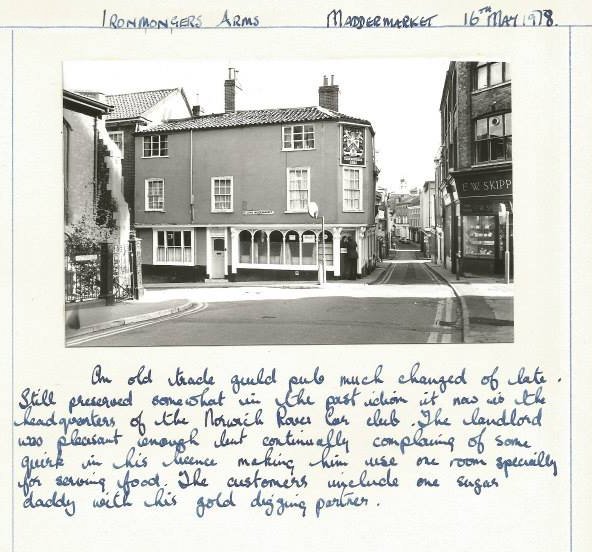 IRONMONGERS ARMS MADDERMARKET 16TH MAY 1978.
E W SKIPP
An old trade guild pub much changed of late.
Still preserved somewhat in the past idiom it now is the
headquarters of the Norwich Rover Car club. The landlord
was pleasant enough but continually complaing of some
quirk in his licence making him use one room specially
for serving food. The customers include one sugar
daddy with his gold digging partner.